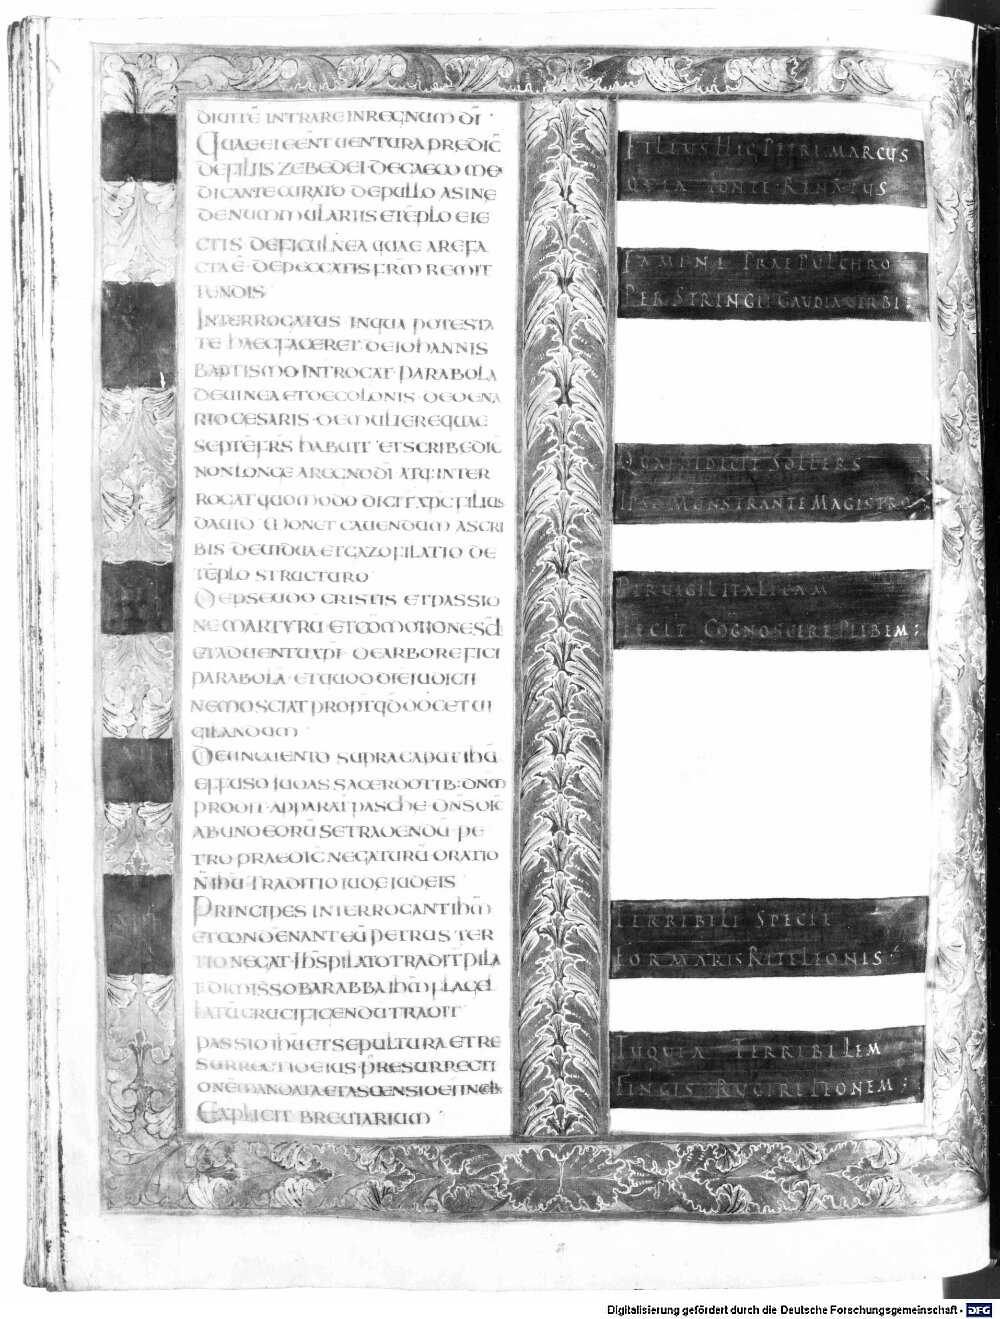 DIUITĒ INTRARE IN REGNUM DĪ
QUAE EI EĒNT UENTURA PREDIC̄
DE FILIIS ZEBEDEI · DE CAECO ME
DICANTE CURATO DE PULLO ASINE
DE NUMMULARIIS ET TĒPLO EIE
CTIS · DE FICULNEA QUAE AREFA
CTA Ē · DE PECCATIS FRM̄ REMIT
TENDIS
INTERROGATUS IN QUA POTESTA
TE HAEC FACERET · DE IOHANNIS
BAPTISMO INTROGAT · PARABOLA
DE UINEA ET DE COLONIS · DE DENA
RIO CESARIS · DE MULIERE QUAE
SEPTĒ FRS HABUIT · ET SCRIBE DIC̄
NON LONGE A REGNO DĪ ATQ: INTER
ROGAT QUOMODO DICIT XP̄C FILIUS
DAUID MONET CAUENDUM A SCRI
BIS · DE UIDUA ET GAZOFILATIO DE
TĒPLO STRUCTURO
DE PSEUDO CRISTIS ET PASSIO
NE MARTYRŪ ET COMMOTIONE SC̄L
ET ADUENTU XPĪ · DE ARBORE FICI
PARABOLĀ · ET QUOD DIE IUDICII
NEMO SCIAT PROPT QD̄ DOCET UI
GILANDUM
DE UNGUENTO SUPRA CAPUT IHŪ
EFFUSO IUDAS SACERDOTIB: DNM̄
PRODIT · APPARAT PASCHE · DN̄S DIC̄
AB UNO EORŪ SE TRADENDŪ · PE
TRO PRAEDIC̄ NEGATURŪ ORATIO
N̄ IHŪ TRADITIO IUDE IUDEIS
PRINCIPES INTERROGANT IHM̄
ET CONDENANT EŪ PETRUS TER
TIO NEGAT · IHS̄ PILATO TRADIT̄ PILA
T DIMISSO BARABBA IHM̄ FLAGEL
LATŪ CRUCIFIGENDŪ TRADIT
PASSIO IHŪ ET SEPULTURA ET RE
SURRECTIO EIUS
EXPLICIT BREUIARIUM
FILIUS HIC PETRI MARCUS
QUIA FONTE RENATUS
FAMINE PRAEPULCHRO
PERSTRINGIT GAUDIA UERBI;
QUAE DIDICIT SOLLERS
HAC MONSTRANTE MAGISTRO
PERUIGIL ITALICAM
FECIT COGNOSCERE PLEBEM;
TERRIBILI SPECIE
FORMARIS RITE LEONIS
TUQUIA TERRIBILEM
FINGIS RUGIRE LEONEM;
Digitalisierung gefördert durch die Deutsche Forschungsgemeinschaft - DFG